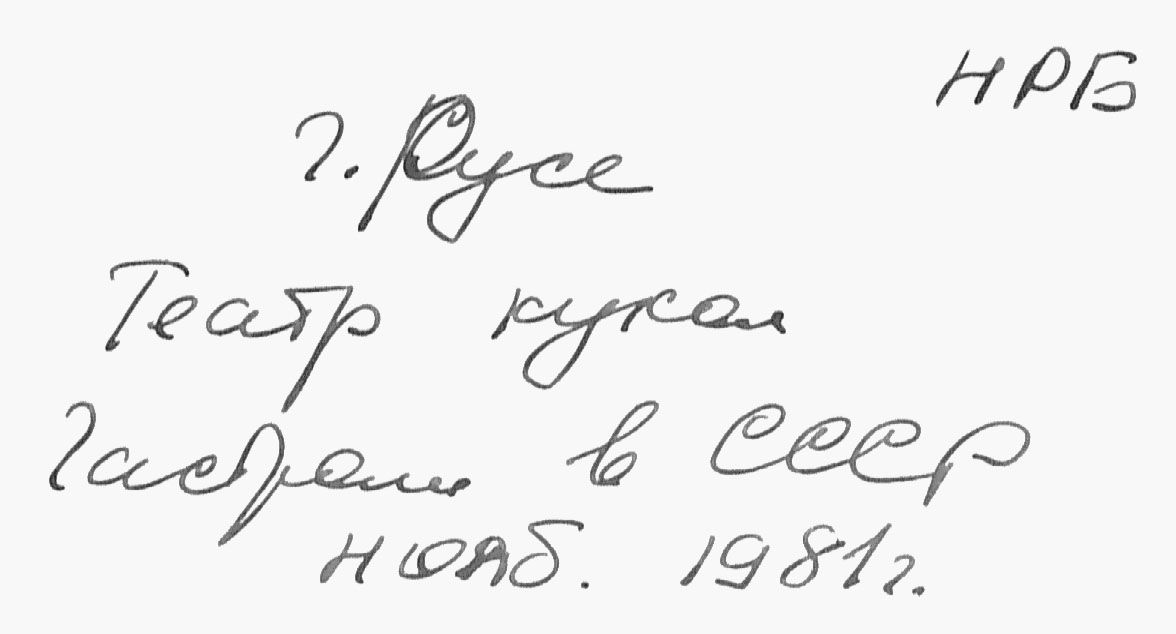 НРБ
г. Русе
Театр кукол
Гастроли в СССР
нояб. 1981г.